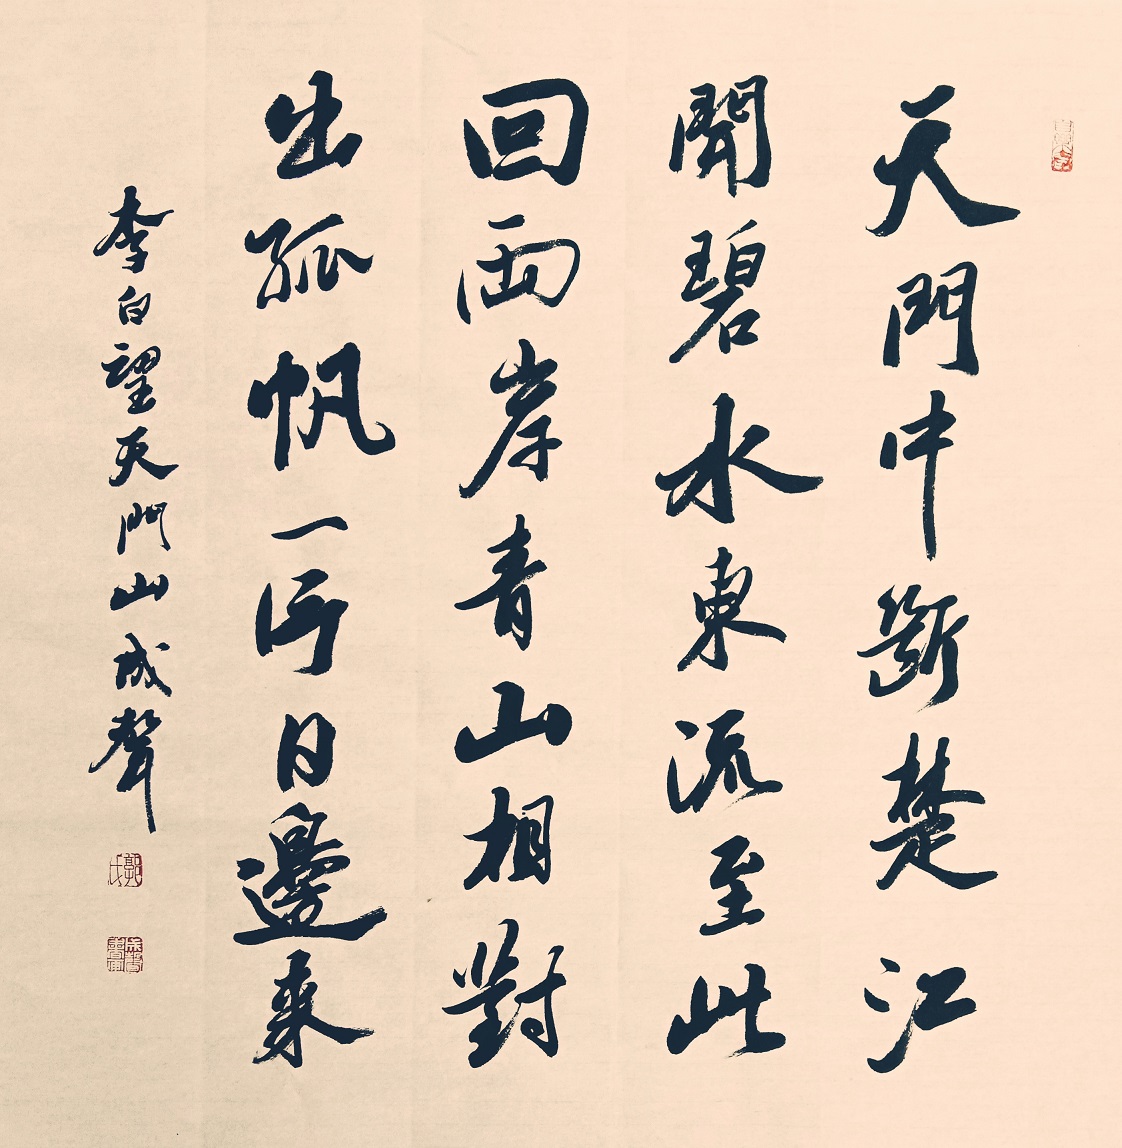 天門中斷楚江
開碧水東流至此
回兩岸青山相對
出孤帆一片日邊來
李白望天門山成聲
郭氏